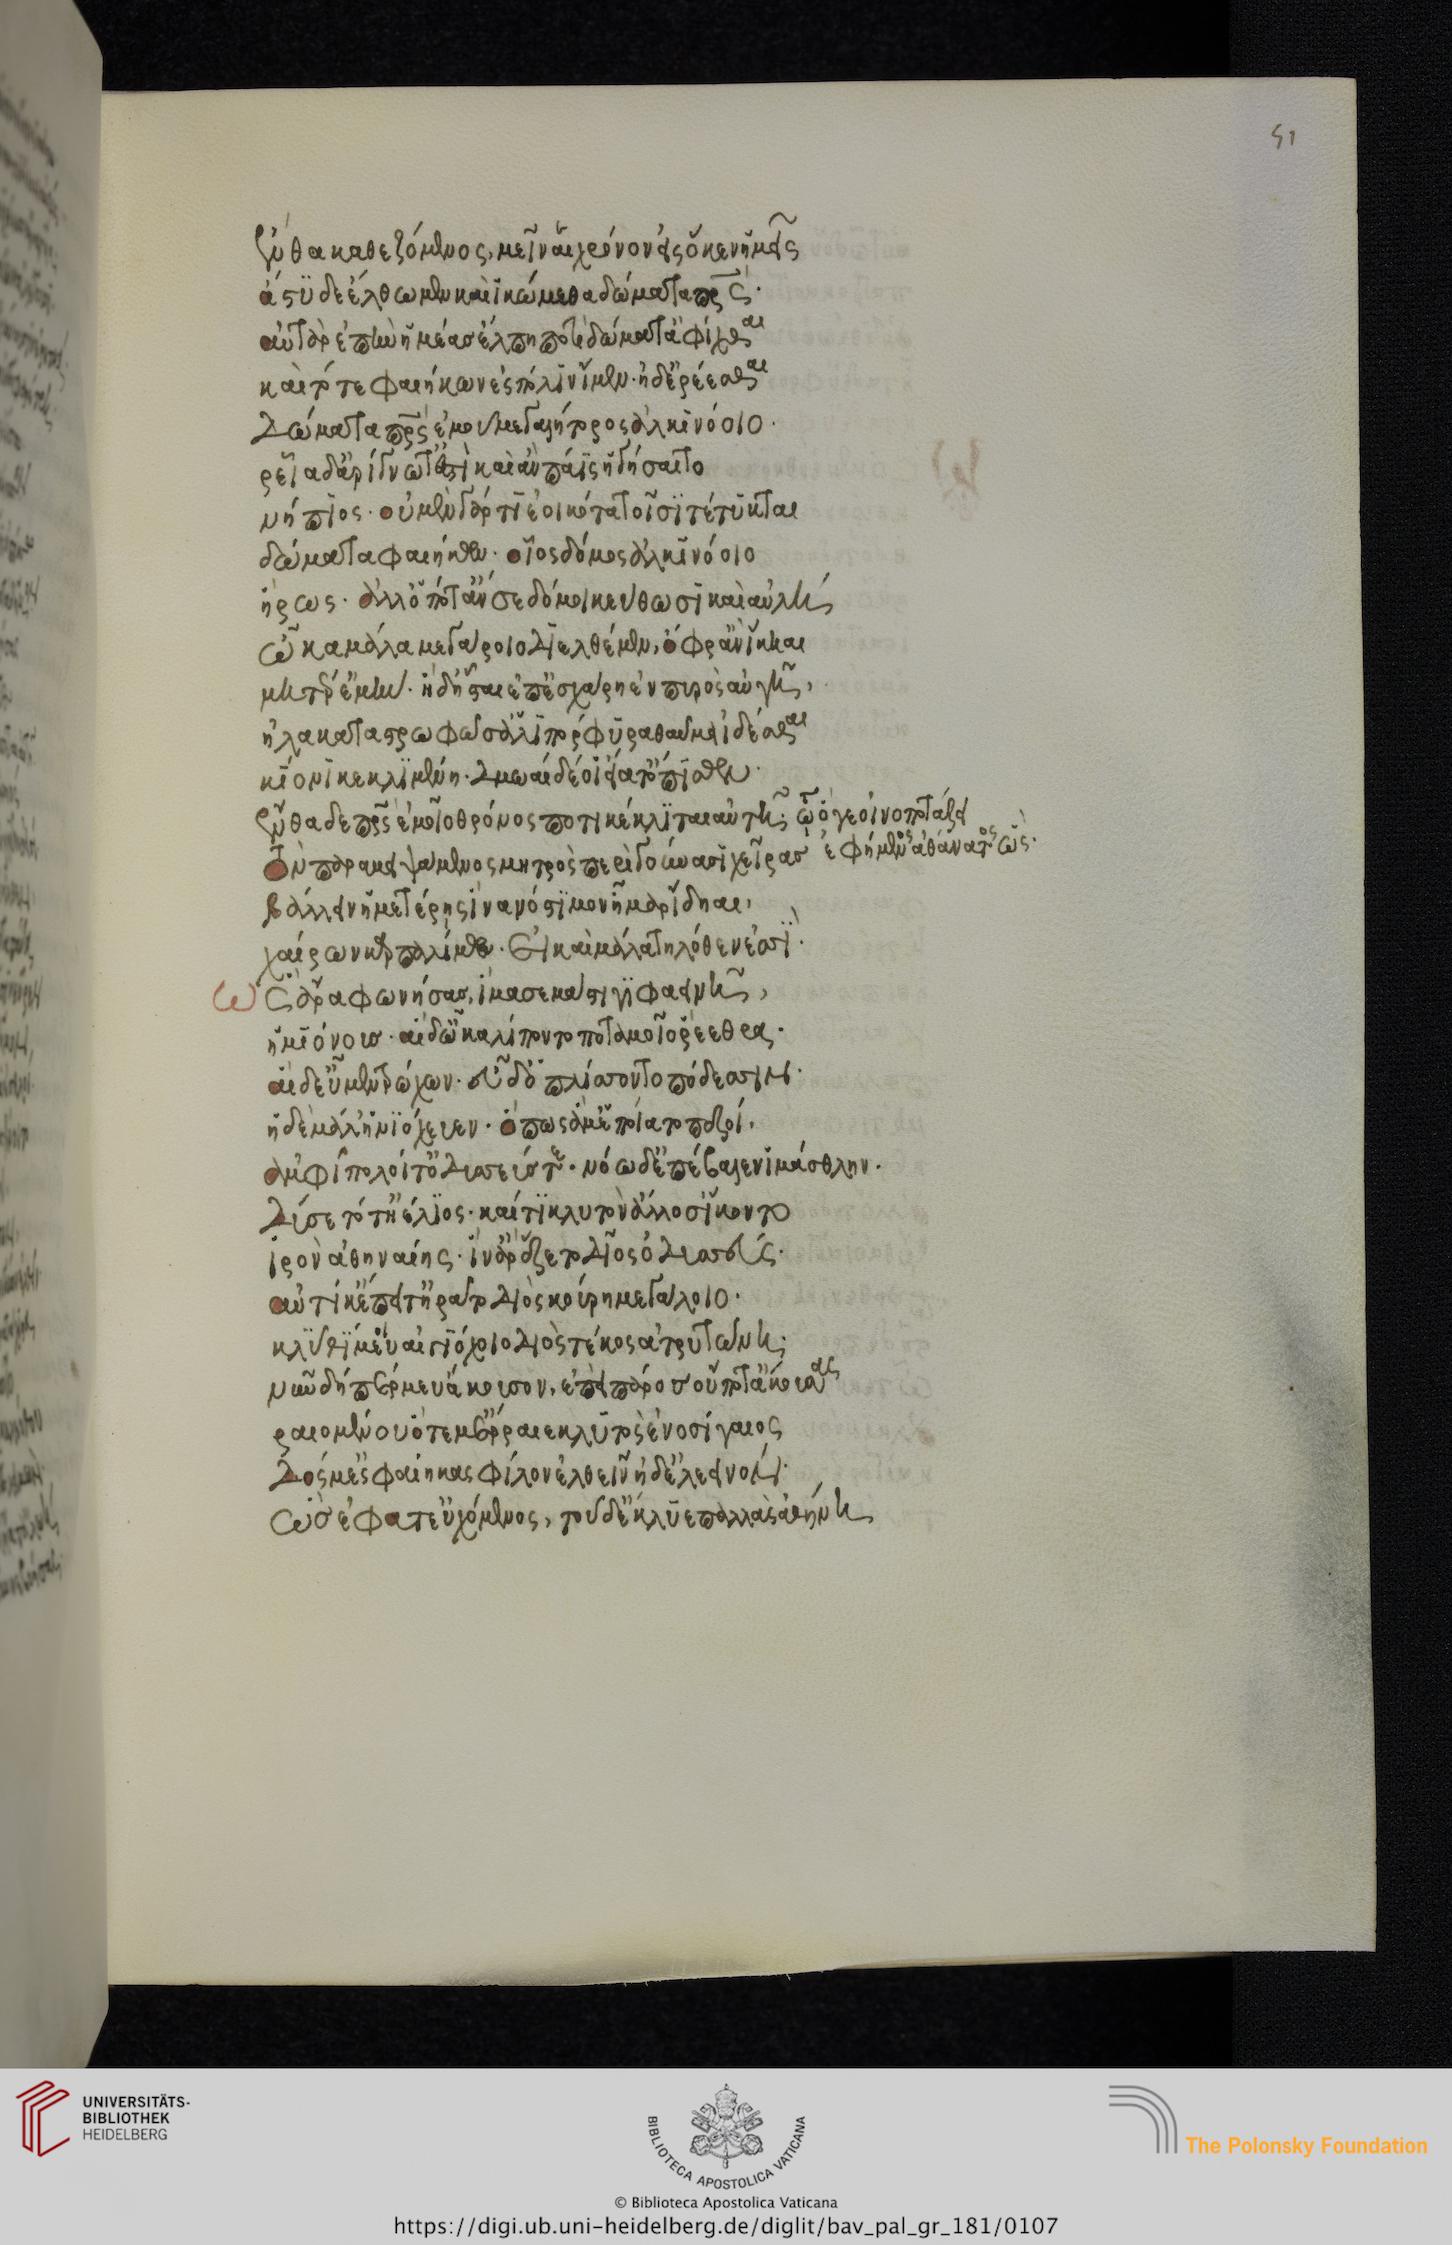 51
ἔνθα καθεζόμενος, μεῖναι χρόνον εἰς ὅκεν ἡμεῖς
ἄστυδε ἔλθωμεν καὶ ἱκώμεθα δώματα πατρός·
αὐτὰρ ἐπὴν ἡμέας ἔλπη ποτὶ δώματ' ἀφίχθαι
καὶ τότε φαιήκων ἐς πόλιν ἴμεν· ἠδ' ἐρέεσθαι
δώματα πατρὸς ἐμοῦ μεγαλήτορος ἀλκινόοιο·
ῥεῖα δ' ἀρίγνωτ' ἐστὶ καὶ ἂν πάϊς ἡγήσαιτο
νήπιος· οὐ μὲν γάρ τι ἐοικότα τοῖσι τέτυκται
δώματα φαιήκων· οἷος δόμος ἀλκινόοιο
ἥρως· ἀλλ' ὁπότ' ἄν σε δόμοι κεύθωσι καὶ αὐλή,
ὦκα μάλα μεγάροιο διελθέμεν, ὄφρ' ἂν ἵκηαι
μητέρ' ἐμήν· ἡ δ' ἧσται ἐπ' ἐσχάρη ἐν πυρὸς αὐγῆ,
ἠλάκατα στρωφῶσ' ἁλιπόρφυρα θαῦμα ἰδέσθαι
κίονι κεκλιμένη· δμωαὶ δέ οἱ εἵατ' ὄπισθεν·
ἔνθα δὲ πατρὸς ἐμοῖο θρόνος ποτικέκλιται αὐτῆ· τῶ ὅγε οἰνοποτάζει
ἐφήμενος ἀθάνατος ὥς·
τὸν παραμειψάμενος μητρὸς περὶ γούνασι χεῖρας
βάλλειν ἡμετέρης ἵνα νόστιμον ἦμαρ ἴδηαι,
χαίρων καρπαλίμως· εἰ καὶ μάλα τηλόθεν ἐσσί·
ὣς ἄρα φωνήσασ' ἵμασεν μάστιγι φαεινῆ,
ἡμιόνους· αἱ δ' ὦκα λίπον ποταμοῖο ῥέεθρα·
αἱ δ' εὖ μὲν τρώχων· εὖ δὲ πλίσσοντο πόδεσσιν·
ἡ δὲ μάλ' ἡνιόχευεν· ὅπως ἅμ' ἑποίατο πεζοί,
ἀμφίπολοί τ' ὀδυσσεύς τε· νόω δ' ἐπέβαλεν ἱμάσθλην·
δύσετό τ' ἠέλιος· καί τοι κλυτὸν ἄλσος ἵκοντο
ἱρὸν ἀθηναίης· ἵν' ἄρ' ἕζετο δῖος ὀδυσσεύς·
αὐτίκ' ἔπειτ' ἠρᾶτο διὸς κούρη μεγάλοιο·
κλῦθί μευ αἰγιόχοιο διὸς τέκος ἀτρυτώνη·
νῦν δή πέρ μευ ἄκουσον, ἐπεὶ πάρος οὔποτ' ἄκουσας
ῥαιομένου ὅτε μ' ἔρραιε κλυτὸς ἐννοσίγαιος
δός μ' ἐς φαίηκας φίλον ἐλθεῖν ἠδ' ἐλεεινόν·
ὣς ἔφατ' εὐχόμενος, τοῦ δ' ἔκλυε παλλὰς ἀθήνη
UNIVERSITÄTS-
BIBLIOTHEK
HEIDELBERG
BIBLIOTECA APOSTOLICA VATICANA
The Polonsky Foundation
© Biblioteca Apostolica Vaticana
https://digi.ub.uni-heidelberg.de/diglit/bav_pal_gr_181/0107